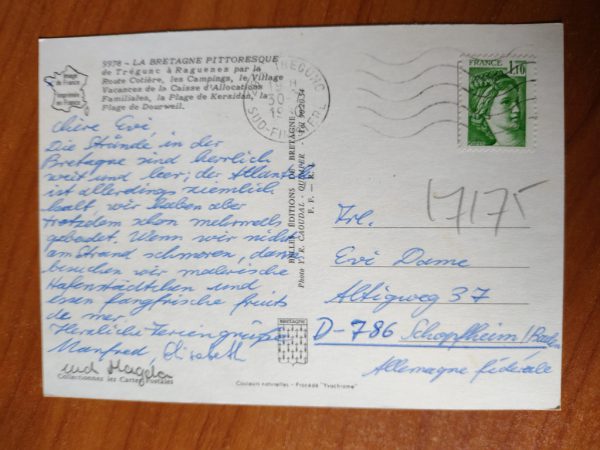 Image de France
Imprimée en France
9976 - LA BRETAGNE PITTORESQUE
de Trégunc à Raguenes par la
Route Cotière, les Campings, le Village
Vacances de la Caisse d'Allocations
Familiales, la Plage de Kersidan, la
Plage de Dourveil.
Liebe Evi,
Die Strände in der
Bretagne sind herrlich
weit und leer; der Atlantik
ist allerdings ziemlich
kalt, wir haben aber
trotzdem schon mehrmals
gebadet. Wenn wir nicht
am Strand schmoren, dann
besuchen wir malerische
Hafenstädtchen und
essen fangfrische fruits
de mer.
Herzliche Feriengrüße
Manfred, Elisabeth
und Magda
Collectionnez les Cartes Postales
BELLES ÉDITIONS DE BRETAGNE
Photo Y. R. CAOUDAL - QUIMPER -
F. F. - R. V.
BRETAGNE
Couleurs naturelles - Procédé "Yvochrome"
TREGUNC
SUD-FINISTERE
FRANCE
1,10
17175
Frl.
Evi Dame
Altigweg 37
D-786 Schopfheim/Baden
Allemagne fédérale